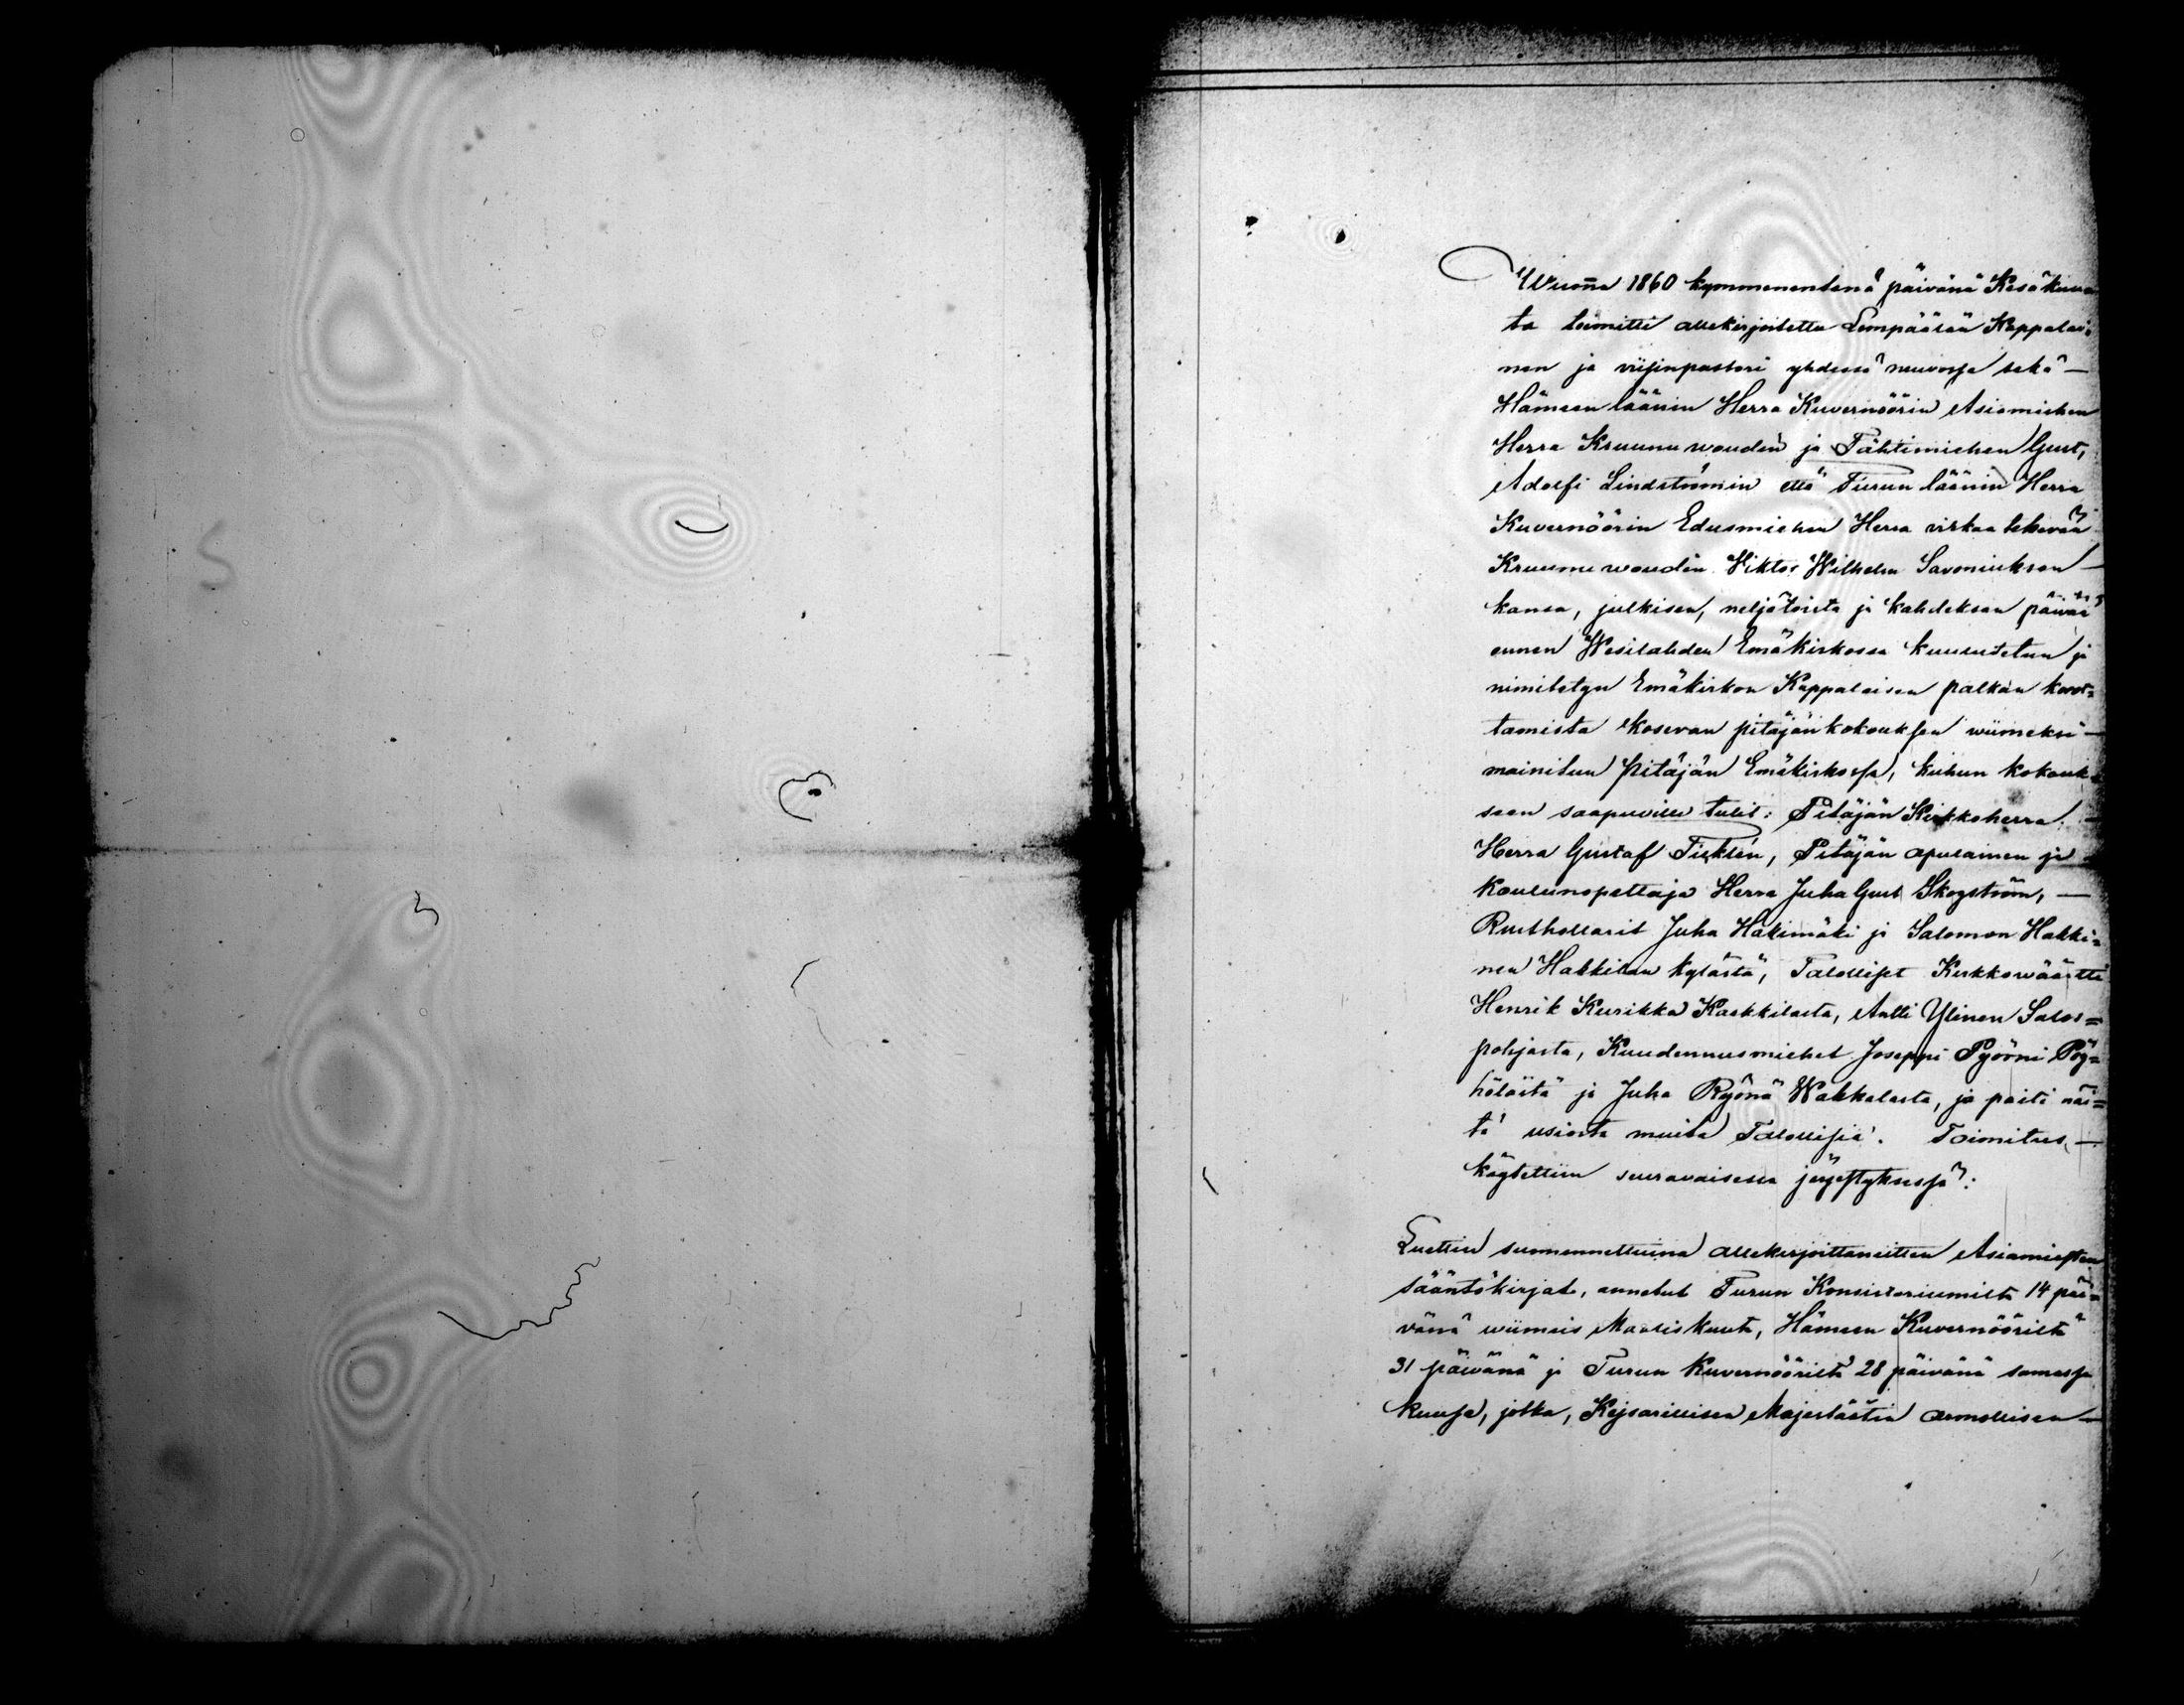 Wuonna 1860 kymmenentenä päivänä Kesäkuu
ta toimitti allekirjoitettu Lempäälän Kappalai-
nen ja viisinpastori yhdessä neuvossa sekä —
Hämeen läänin Herra Kuvernöörin Asiamiehen
Herra Kruunuwoudin ja Tähtimiehen Gust,
Adolfi Lindströmin että Turun läänin Herra
Kuvernöörin Edusmiehen Herra virkaa tekevän
Kruunuwoudin Viktor Wilhelm Savoniuksen —
kansa, julkisen, neljätoista ja kahdeksan päivää
ennen Wesilahden Emäkirkossa kuulutetun ja
nimitetyn Emäkirkon Kappalaisen palkan koros=
tamista koskevan pitäjänkokouksen wiimeksi —
mainitun Pitäjän Emäkirkossa, kuhun kokouk
seen saapuville tulit: Pitäjän Kirkkoherra —
Herra Gustaf Ticklén, Pitäjän apulainen ja
koulunopettaja Herra Juha Gust Skogström, —
Rusthollarit Juha Hakimäki ja Salomon Hakki=
nen Hakkilan kylästä, Talolliset Kirkkowäärtti
Henrik Kurikka Kaakkilasta, Antti Ylinen Salos=
pohjasta, Kuudennusmiehet Joseppi Pyörni Pöy=
hölästä ja Juha Ryönä Wakkalasta, ja paiti näi=
tä usiata muita Talollisia. Toimitus —
käytettiin seuravaisessa järjestyksessä:
Luettiin suomennettuina allekirjoittaneitten Asiamiesten
sääntökirjat, annetut Turun Konsistoriumilta 14 päi=
vänä wiimeis Maaliskuuta, Hämeen Kuvernööriltä
31 päivänä ja Turun Kuvernööriltä 28 päivänä samassa
kuussa, jotka, Kejsarillisen Majestäetin armollisen —